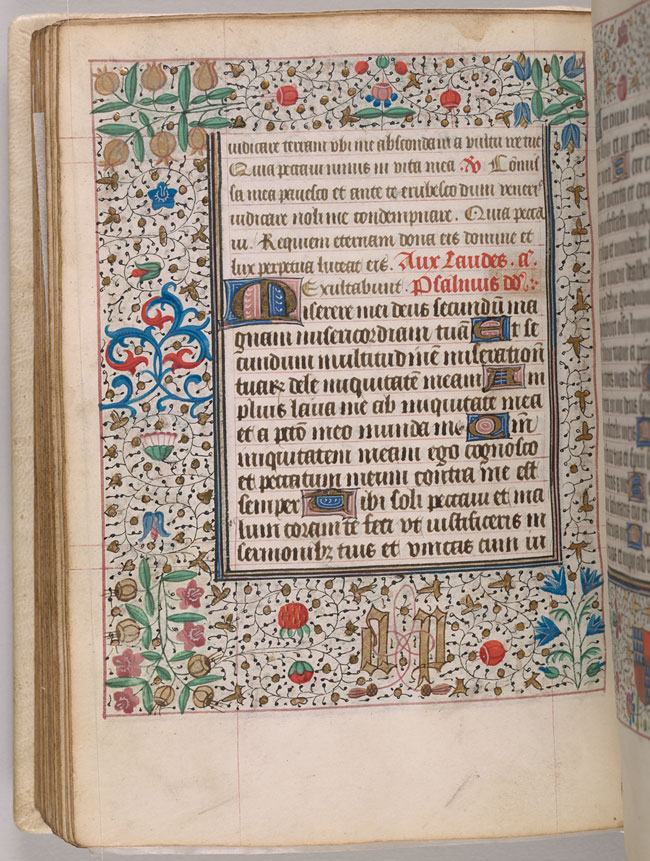 iudicare terram vbi me abscondam a vultu ire tue
Quia peccaui nimis in vita mea. ℣ Cōmis
sa mea pauesco et ante te erubesco dum veneris
iudicare noli me condempnare. Quia pecca
ui. Requiem eternam dona eis domine et
lux perpetua luceat eis. Aux Laudes. a.
Exultabunt. Psalmus dd.
Miserere mei deus secundū ma
gnam misericordiam tuā Et se
cundum multitudinē miseration̄
tuar dele iniquitatē meam Am
plius laua me ab iniquitate mea
et a pctō meo munda me Qm̄
iniquitatem meam ego cognosco
et peccatum meum contra me est
semper Tibi soli peccaui et ma
lum coram te feci vt iustificeris in
sermonibꝫ tuis et vincas cum iu